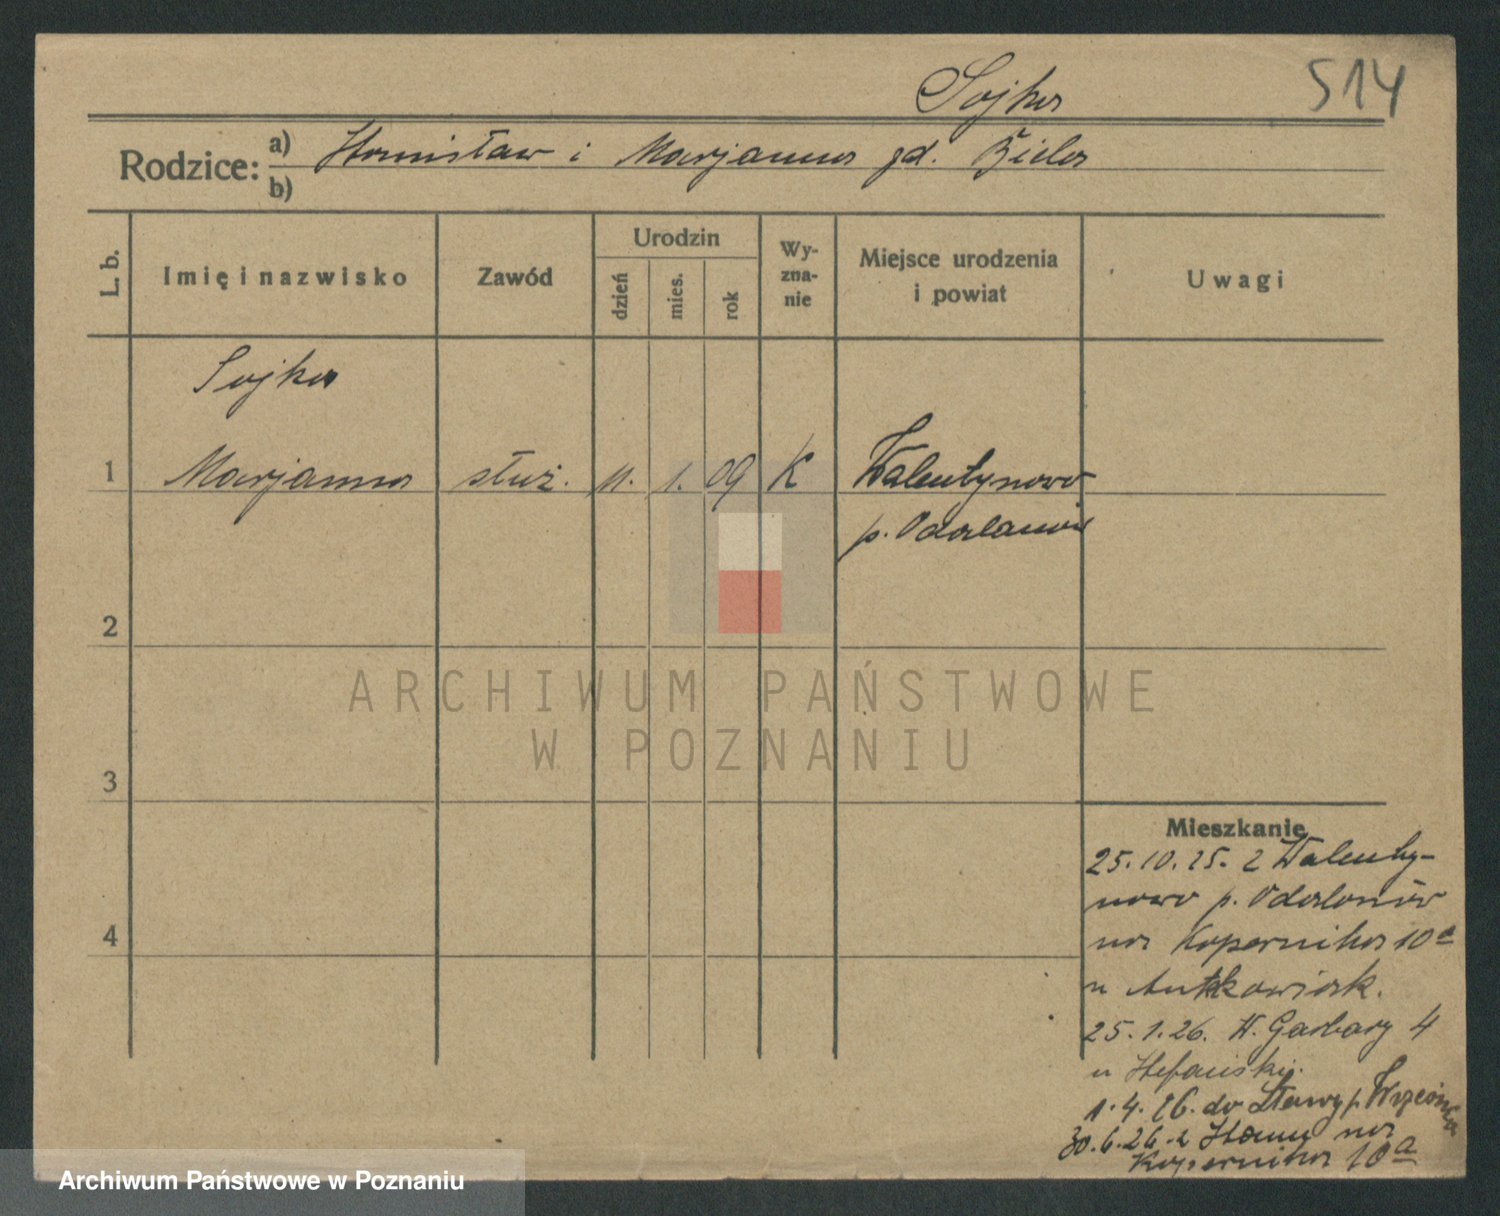 Sojka
514
Rodzice: a) Stanisław i Marjanna zd. Biela
b)
L. b.
Imię i nazwisko
Zawód
Urodzin
dzień
mies.
rok
Wy-
zna-
nie
Miejsce urodzenia
i powiat
Uwagi
Sojka
1 Marjanna służ. 11. 1. 09 K Walentynowo
p. Odolanów
2
ARCHIWUM PAŃSTWOWE
W POZNANIU
3
4
Mieszkanie
25.10.25. z Walenty-
nowo p. Odolanów
na Kopernika 10a
u Antkowiak.
25.1.26. W. Garbary 4
u Stefański.
1.4.26. do p. Września
30.6.26. z na
Kopernika 10a
Archiwum Państwowe w Poznaniu